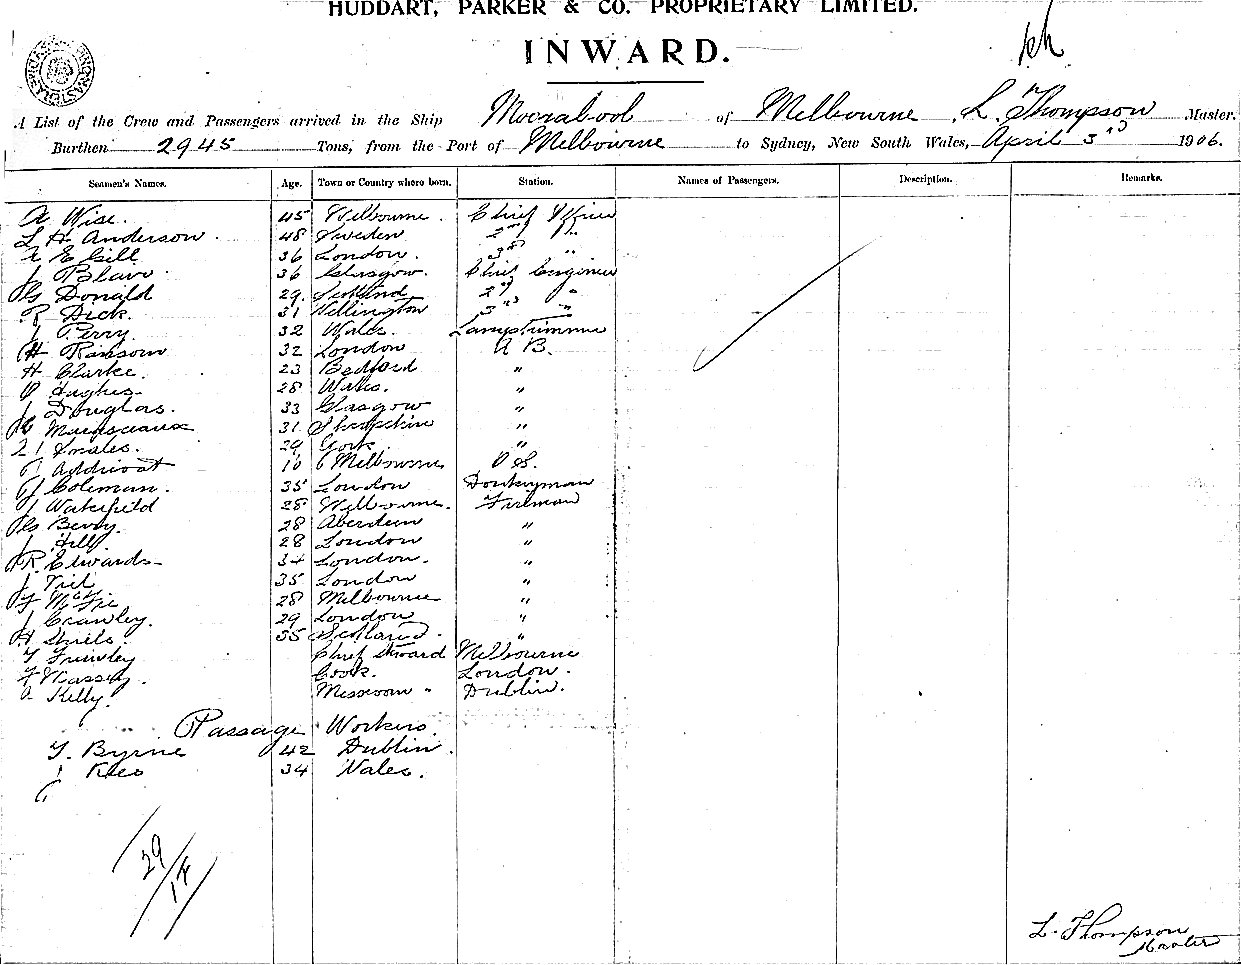 HUDDART, PARKER & CO. PROPRIETARY LIMITED.
INWARD.
A List of the Crew and Passengers arrived in the Ship Moorabool of Melbourne L. Thompson Master.
Burthen 2945 Tons, from the Port of Melbourne to Sydney, New South Wales, April 3rd 1906.
Seamen's Names. Age. Town or Country where born. Station. Names of Passengers. Description. Remarks.
A Wise. 45 Melbourne. Chief Officer
L H Anderson. 48 Sweden 2nd "
A E Gill 36 London. 3rd "
J 36 Glasgow. Chief Engineer
Donald 29. Scotland 2nd "
R Dick. 31 Wellington 3rd "
Perry. 32 Wales. Lamptrimmer
H Ransom 32 London A B.
H Clarke. 23 Bedford "
O Hughes 28 Wales. "
J Douglas. 33 Glasgow "
31 Shropshire "
29 York. "
16 Melbourne O S.
J Coleman. 35 London Donkeyman
J Wakefield 28 Melbourne. Fireman
Berry. 28 Aberdeen "
J Hill 28 London "
R Edwards 34 London. "
J 35 London "
28 Melbourne "
J Crawley. 29 London "
H Shiels. 35 Scotland. "
Chief Steward Melbourne
F Massey. Cook. London.
Kelly. Messroom " Dublin.
Passage Workers.
T. Byrne 42 Dublin.
J Rees 34 Wales.
29/14
L. Thompson
Master